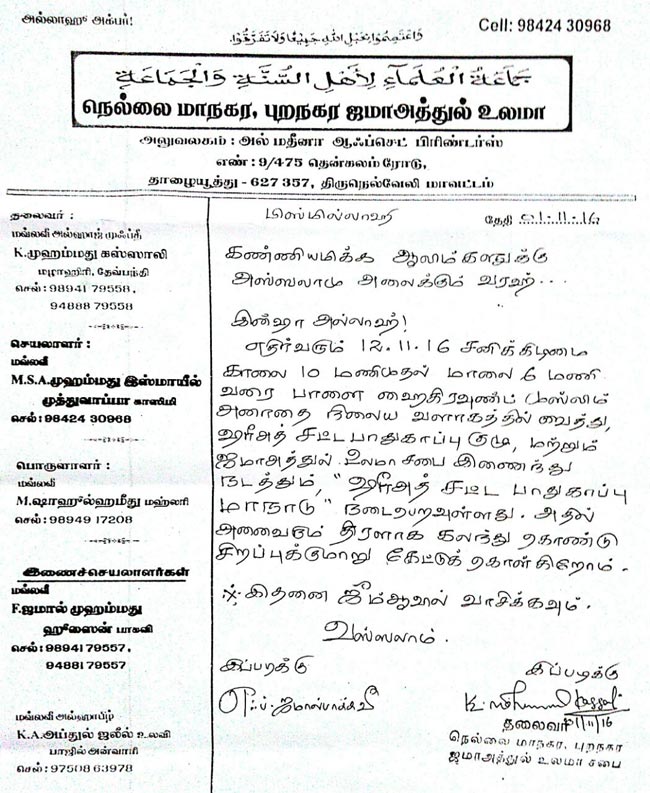 அல்லாஹு அக்பர்!
Cell: 98424 30968
وَاعْتَصِمُوا بِحَبْلِ اللهِ جَمِيْعًا وَلَا تَفَرَّقُوْا
جَمَاعَةُ الْعُلَمَاءِ لِأَهْلِ السُّنَّةِ وَالْجَمَاعَةِ
நெல்லை மாநகர, புறநகர ஜமாஅத்துல் உலமா
அலுவலகம் : அல் மதீனா ஆஃப்செட் பிரிண்டர்ஸ்
எண் : 9/475 தென்கலம் ரோடு,
தாழையூத்து - 627 357, திருநெல்வேலி மாவட்டம்
தலைவர் :
மவ்லவி அல்ஹாஜ் முஃப்தி
K.முஹம்மது கஸ்ஸாலி
மழாஹிரி, தேவ்பந்தி
செல் : 98941 79558,
94888 79558
செயலாளர் :
மவ்லவி
M.S.A.முஹம்மது இஸ்மாயீல்
முத்துவாப்பா காஸிமி
செல் : 98424 30968
பொருளாளர் :
மவ்லவி
M.ஷாஹுல்ஹமீது மஹ்லரி
செல் : 98949 17208
இணைச்செயலாளர்கள்
மவ்லவி
F.ஜமால் முஹம்மது
ஹுஸைன் பாகவி
செல் : 9894179557,
9488179557
மவ்லவி அல்ஹாபிழ்
K.A.அப்துல் ஜலீல் உலவி
பாஜில் அன்வாரி
செல் : 97508 63978
பிஸ்மில்லாஹி
தேதி 01.11.16
கண்ணியமிக்க ஆலிம்களுக்கு
அஸ்ஸலாமு அலைக்கும் வரஹ்...
இன்ஷா அல்லாஹ்!
எதிர்வரும் 12.11.16 சனிக்கிழமை
காலை 10 மணிமுதல் மாலை 6 மணி
வரை பாளை ஹைகிரவுண்ட் முஸ்லிம்
அனாதை நிலைய வளாகத்தில் வைத்து,
ஷரீஅத் சட்ட பாதுகாப்பு குழு, மற்றும்
ஜமாஅத்துல் உலமா சபை இணைந்து
நடத்தும், "ஷரீஅத் சட்ட பாதுகாப்பு
மாநாடு" நடைபெறவுள்ளது. அதில்
அனைவரும் திரளாக கலந்து கொண்டு
சிறப்புக்குமாறு கேட்டுக் கொள்கிறோம்.
※ இதனை ஜும்ஆவில் வாசிக்கவும்.
வஸ்ஸலாம்.
இப்படிக்கு
இப்படிக்கு
தலைவர் 01/11/16
நெல்லை மாநகர, புறநகர
ஜமாஅத்துல் உலமா சபை